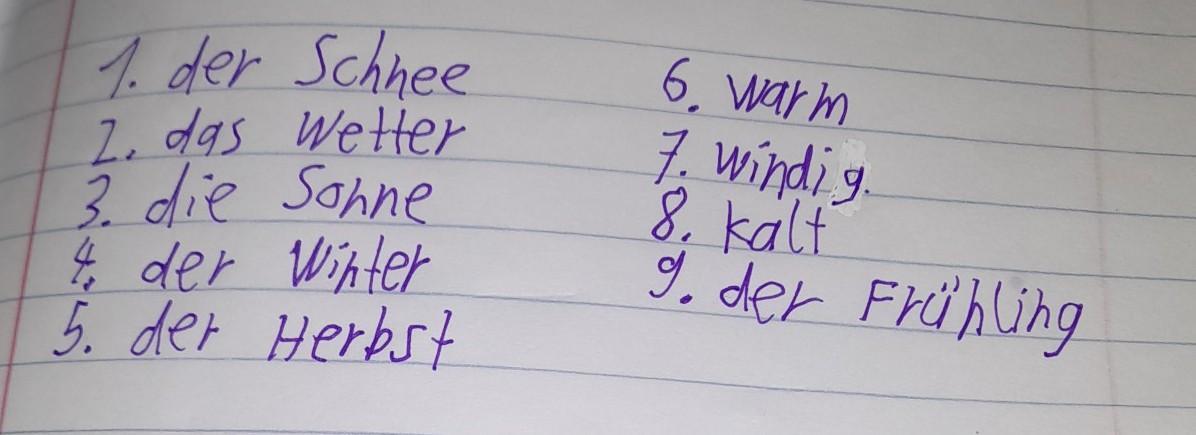 1. der Schnee
2. das Wetter
3. die Sonne
4. der Winter
5. der Herbst
6. warm
7. windig.
8. kalt
9. der Frühling